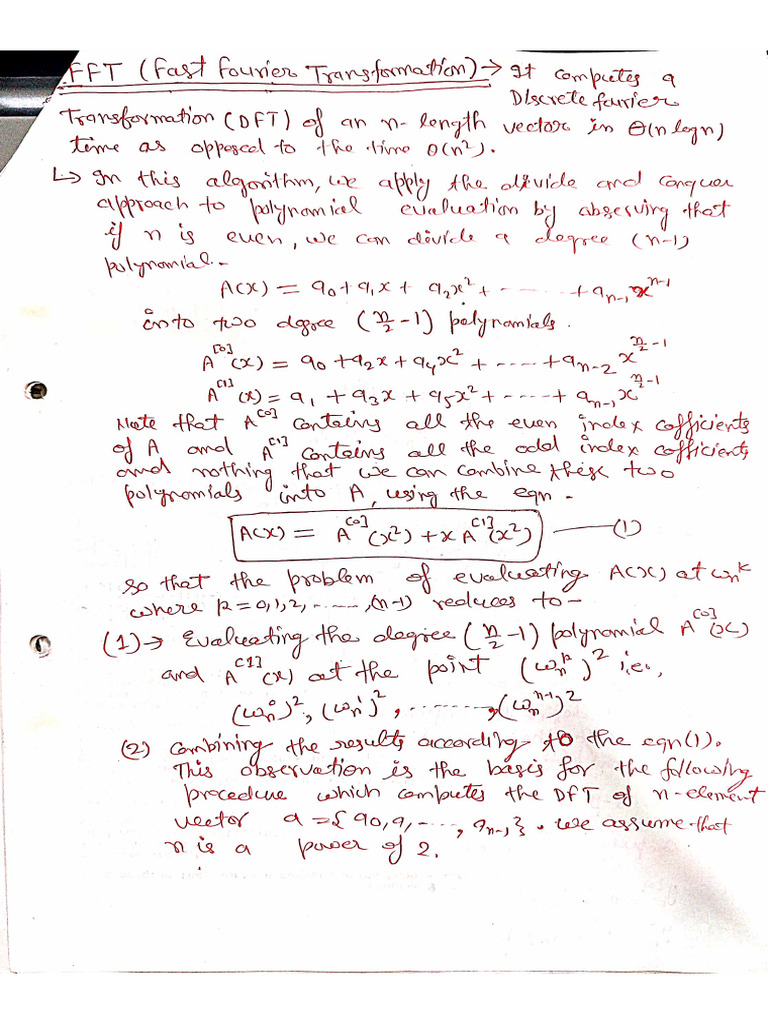 FFT (Fast Fourier Transformation) → It computes a
Discrete fourier
Transformation (DFT) of an n-length vector in Θ(n logn)
time as opposed to the time Θ(n²).
↳ In this algorithm, we apply the divide and conquer
approach to polynomial evaluation by observing that
if n is even, we can divide a degree (n-1)
polynomial -
A(x) = a₀ + a₁x + a₂x² + ------ + aₙ₋₁ xⁿ⁻¹
into two degree (n/2 - 1) polynomials.
A^[0](x) = a₀ + a₂x + a₄x² + ---- + aₙ₋₂ x^(n/2 - 1)
A^[1](x) = a₁ + a₃x + a₅x² + ---- + aₙ₋₁ x^(n/2 - 1)
Note that A^[0] contains all the even index cofficients
of A and A^[1] contains all the odd index cofficients
and nothing that we can combine these two
polynomials into A, using the eqn -
A(x) = A^[0](x²) + x A^[1](x²) —— (1)
so that the problem of evaluating A(x) at ωₙᵏ
where k = 0,1,2, ------, (n-1) reduces to -
(1) → Evaluating the degree (n/2 - 1) polynomial A^[0](x)
and A^[1](x) at the point (ωₙᵏ)² i.e.,
(ωₙ⁰)², (ωₙ¹)², --------, (ωₙⁿ⁻¹)²
(2) Combining the results according to the eqn(1).
This observation is the basis for the following
procedure which computes the DFT of n-element
vector a = {a₀, a, ----, aₙ₋₁}. we assume that
n is a power of 2.